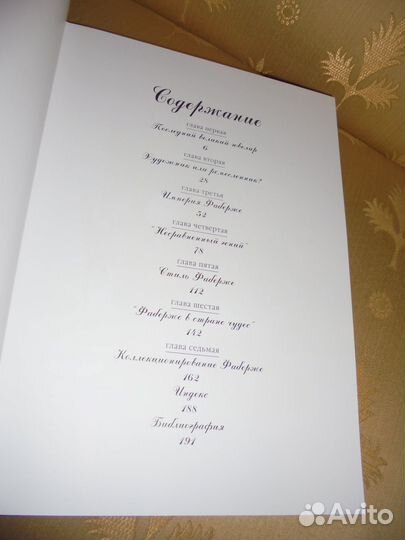 Содержание
глава первая
Последний великий ювелир
6
глава вторая
Художник или ремесленник?
28
глава третья
Империя Фаберже
52
глава четвертая
"Несравненный гений"
78
глава пятая
Стиль Фаберже
112
глава шестая
"Фаберже в стране чудес"
142
глава седьмая
Коллекционирование Фаберже
162
Индекс
188
Библиография
191
Avito